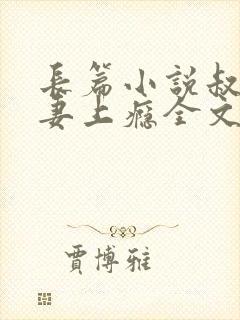 長篇小説叔
妻上癮全文
賈博雅